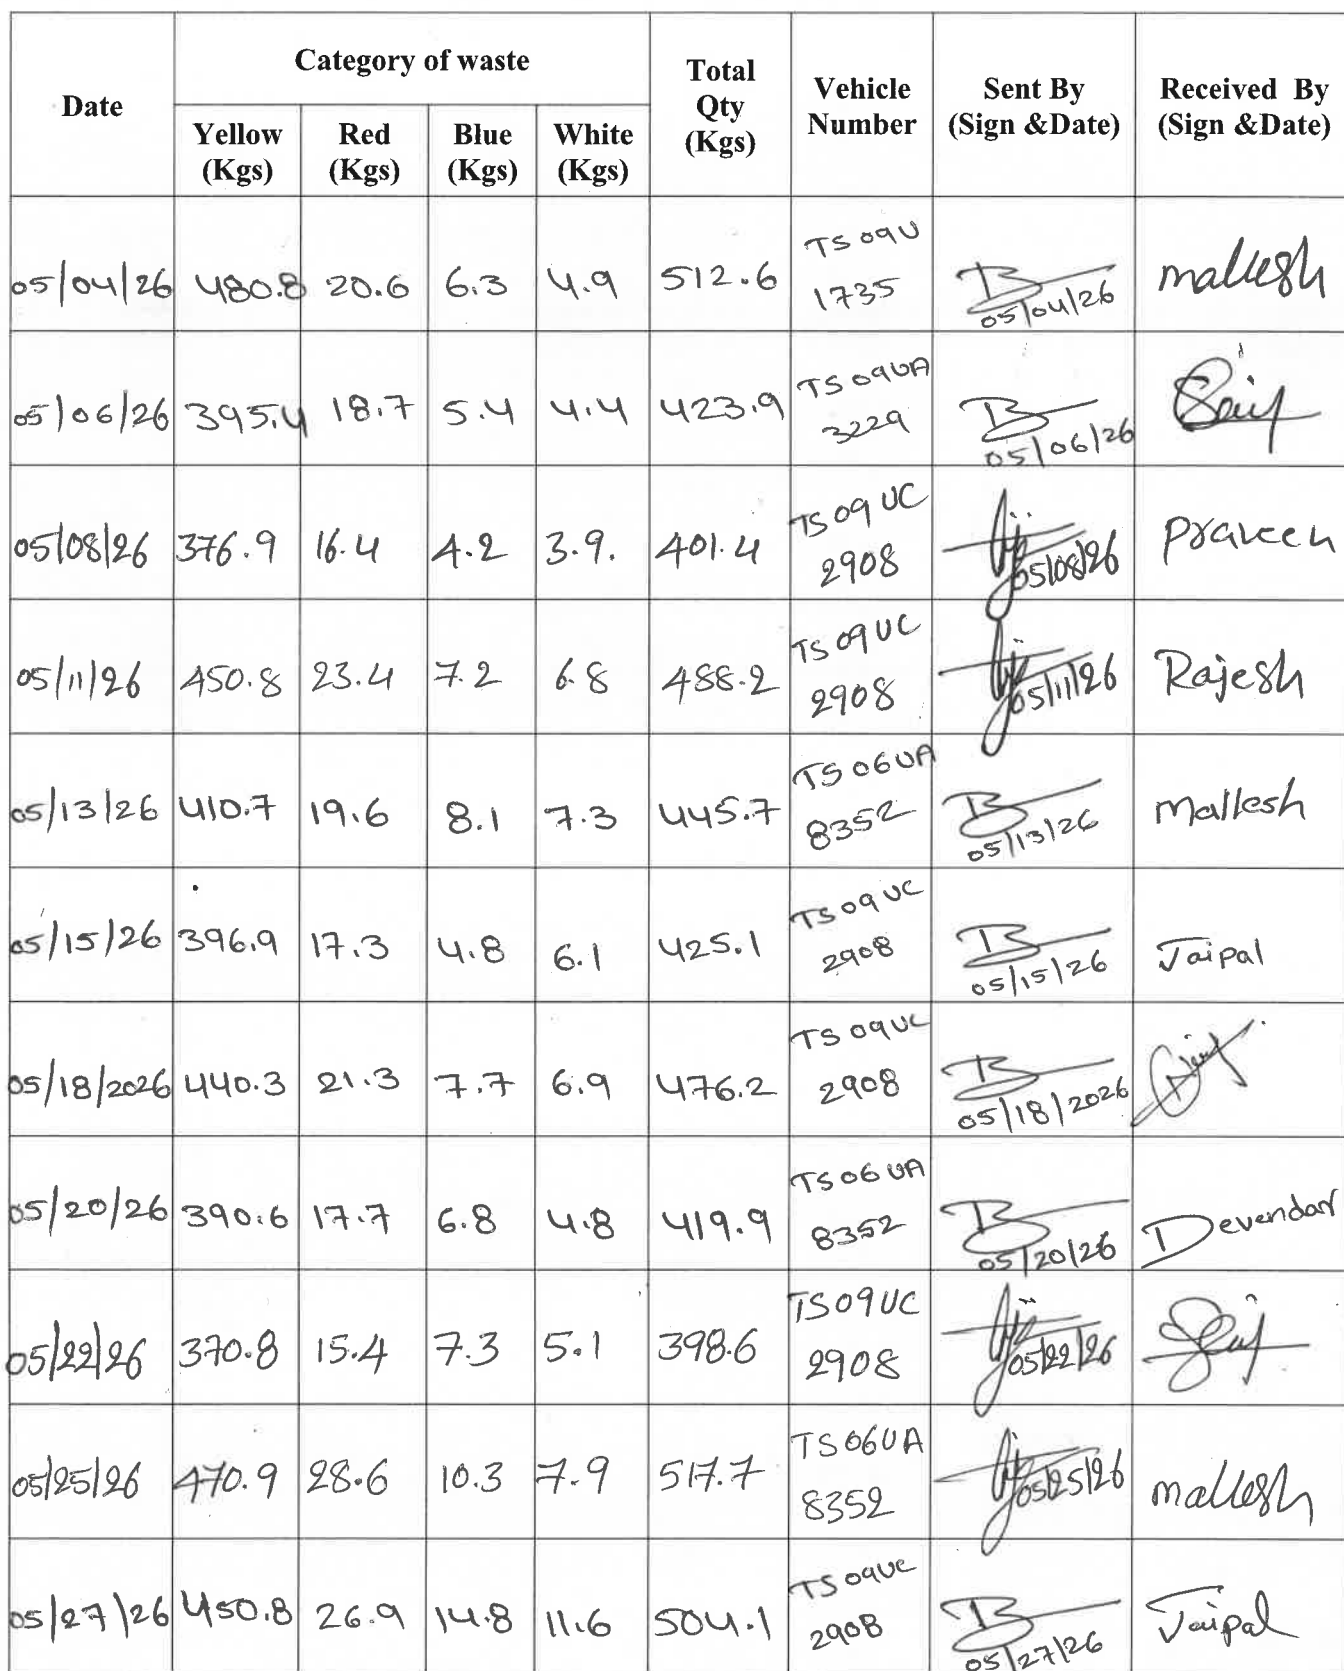 Date Category of waste Total Qty (Kgs) Vehicle Number Sent By (Sign &Date) Received By (Sign &Date)
Yellow (Kgs) Red (Kgs) Blue (Kgs) White (Kgs)
05/04/26 480.8 20.6 6.3 4.9 512.6 TS09U 1735 05/04/26 mallesh
05/06/26 395.4 18.7 5.4 4.4 423.9 TS09UA 3229 05/06/26
05/08/26 376.9 16.4 4.2 3.9. 401.4 TS09UC 2908 05/08/26 Praveen
05/11/26 450.8 23.4 7.2 6.8 488.2 TS09UC 2908 05/11/26 Rajesh
05/13/26 410.7 19.6 8.1 7.3 445.7 TS06UA 8352 05/13/26 Mallesh
05/15/26 396.9 17.3 4.8 6.1 425.1 TS09UC 2908 05/15/26 Jaipal
05/18/2026 440.3 21.3 7.7 6.9 476.2 TS09UC 2908 05/18/2026
05/20/26 390.6 17.7 6.8 4.8 419.9 TS06UA 8352 05/20/26 Devendar
05/22/26 370.8 15.4 7.3 5.1 398.6 TS09UC 2908 05/22/26
05/25/26 470.9 28.6 10.3 7.9 517.7 TS06UA 8352 05/25/26 mallesh
05/27/26 450.8 26.9 14.8 11.6 504.1 TS09UC 2908 05/27/26 Jaipal